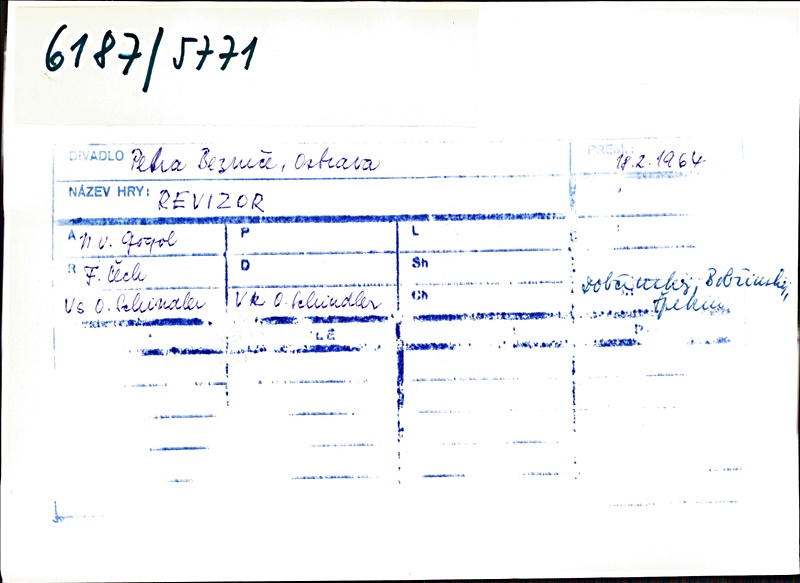 6187/5771
DIVADLO Petra Bezruče, Ostrava
PREM.: 18.2.1964
NÁZEV HRY: REVIZOR
A N. V. Gogol P L
R F. Čech D Sh
Vs O. Schindler Vk O. Schindler Ch
Dobčinskij, Bobčinskij,